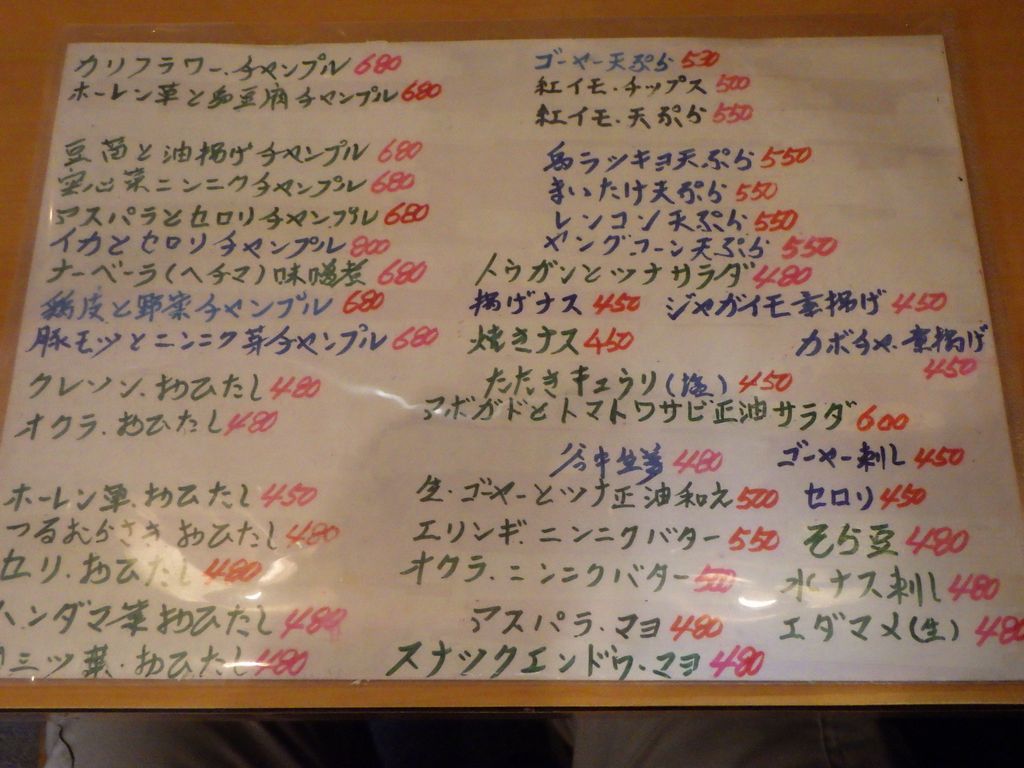 カリフラワー.チャンプル 680
ホーレン草と島豆腐チャンプル 680
豆苗と油揚げチャンプル 680
空心菜ニンニクチャンプル 680
アスパラとセロリチャンプル 680
イカとセロリチャンプル 800
ナーベーラ(ヘチマ)味噌煮 680
鶏皮と野菜チャンプル 680
豚モツとニンニク芽チャンプル 680
クレソン.おひたし 480
オクラ.おひたし 480
ホーレン草.おひたし 450
つるむらさきおひたし 480
セリ.おひたし 480
ハンダマ菜おひたし 480
三ツ葉.おひたし 480
ゴーヤー天ぷら 530
紅イモ.チップス 500
紅イモ.天ぷら 550
島ラッキョ天ぷら 550
まいたけ天ぷら 550
レンコン天ぷら 550
ヤングコーン天ぷら 550
トウガンとツナサラダ 480
揚げナス 450 ジャガイモ素揚げ 450
焼きナス 450 カボチャ.素揚げ 450
たたきキュウリ(塩) 450
アボガドとトマトワサビ正油サラダ 600
谷中生姜 480 ゴーヤー刺し 450
生.ゴーヤーとツナ正油和え 500 セロリ 450
エリンギ.ニンニクバター 550 そら豆 480
オクラ.ニンニクバター 500 水ナス刺し 480
アスパラ.マヨ 480 エダマメ(生) 480
スナックエンドウ.マヨ 480